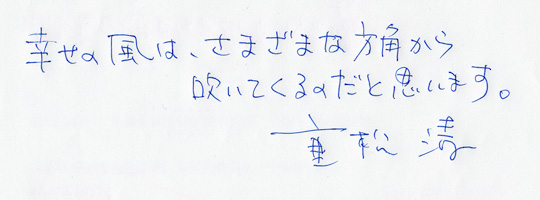 幸せの風は、さまざまな方角から
吹いてくるのだと思います。
重松清